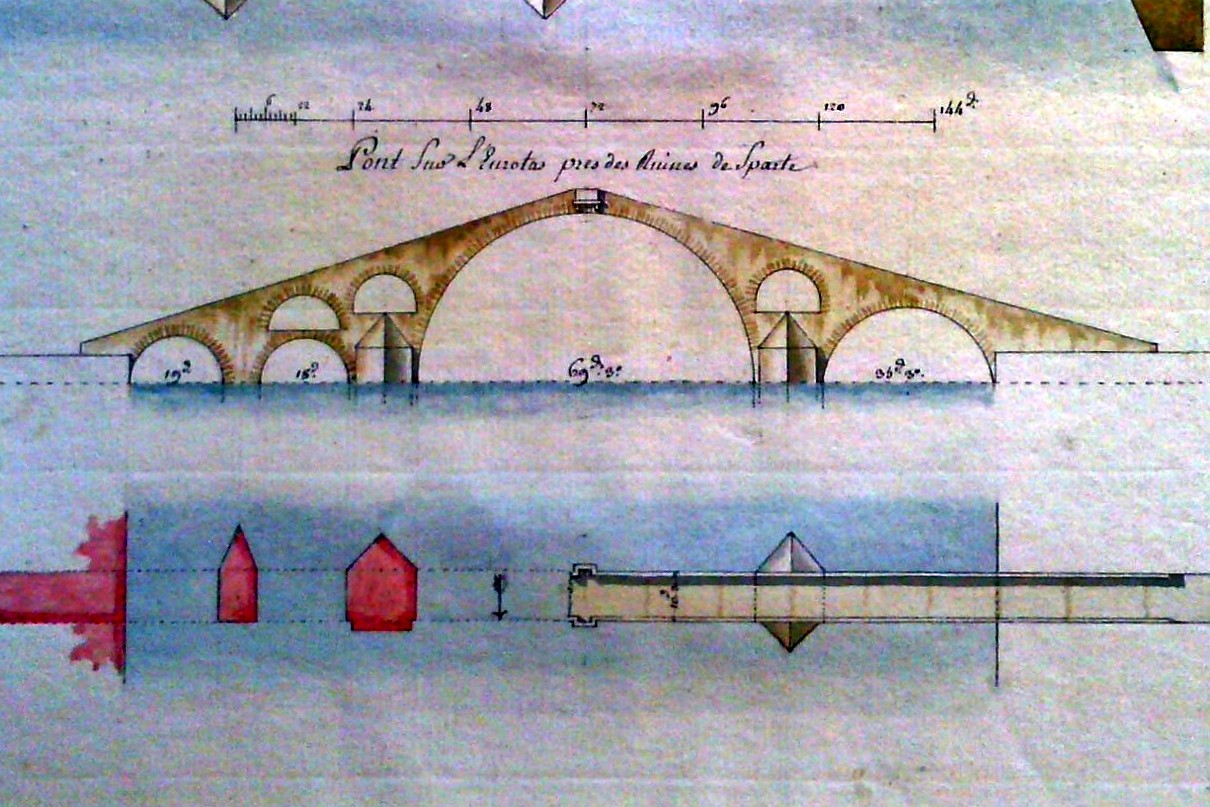 6 12 24 48 72 96 120 144 d.
Pont Sur L'Eurotas pres des Ruines de Sparte
19 d. 18 d. 69 d. 3º.